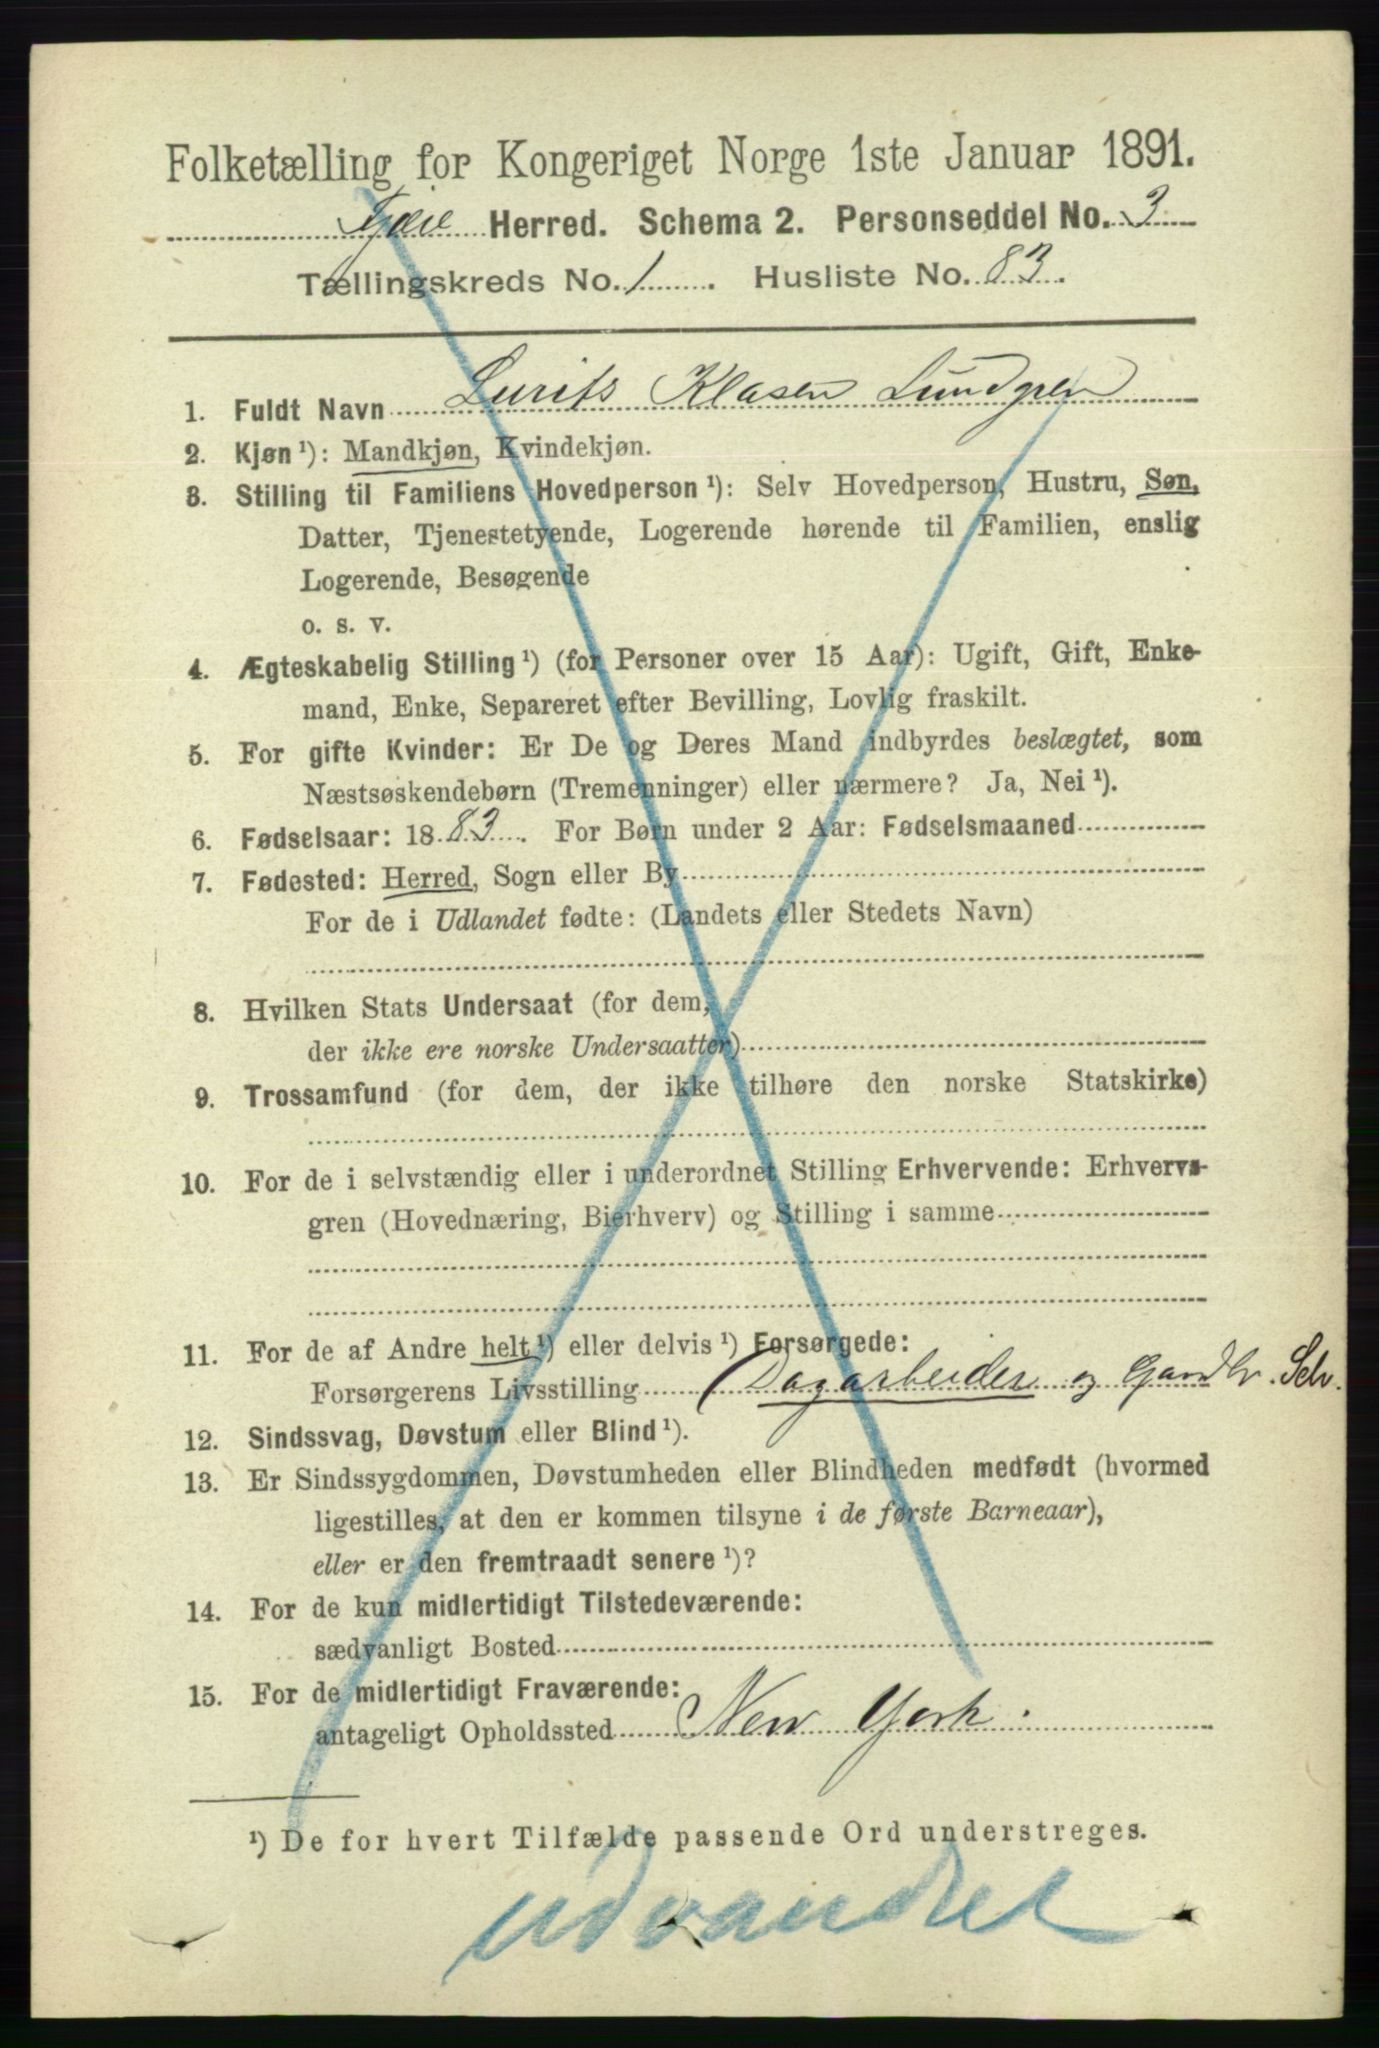 Folketælling for Kongeriget Norge 1ste Januar 1891.
Herred. Schema 2. Personseddel No. 3
Tællingskreds No. 1 . Husliste No. 83.
1. Fuldt Navn Lurits Klasen Lundgren
2. Kjøn ¹): Mandkjøn, Kvindekjøn.
3. Stilling til Familiens Hovedperson ¹): Selv Hovedperson, Hustru, Søn,
Datter, Tjenestetyende, Logerende hørende til Familien, enslig
Logerende, Besøgende
o. s. v.
4. Ægteskabelig Stilling ¹) (for Personer over 15 Aar): Ugift, Gift, Enke-
mand, Enke, Separeret efter Bevilling, Lovlig fraskilt.
5. For gifte Kvinder: Er De og Deres Mand indbyrdes beslægtet, som
Næstsøskendebørn (Tremenninger) eller nærmere? Ja, Nei ¹).
6. Fødselsaar: 18 83. For Børn under 2 Aar: Fødselsmaaned
7. Fødested: Herred, Sogn eller By
For de i Udlandet fødte: (Landets eller Stedets Navn)
8. Hvilken Stats Undersaat (for dem,
der ikke ere norske Undersaatter)
9. Trossamfund (for dem, der ikke tilhøre den norske Statskirke)
10. For de i selvstændig eller i underordnet Stilling Erhvervende: Erhvervs-
gren (Hovednæring, Bierhverv) og Stilling i samme
11. For de af Andre helt ¹) eller delvis ¹) Forsørgede:
Forsørgerens Livsstilling (Dagarbeider og Gaardbr. Selv.
12. Sindssvag, Døvstum eller Blind ¹).
13. Er Sindssygdommen, Døvstumheden eller Blindheden medfødt (hvormed
ligestilles, at den er kommen tilsyne i de første Barneaar),
eller er den fremtraadt senere ¹)?
14. For de kun midlertidigt Tilstedeværende:
sædvanligt Bosted
15. For de midlertidigt Fraværende:
antageligt Opholdssted New York.
¹) De for hvert Tilfælde passende Ord understreges.
udvandret